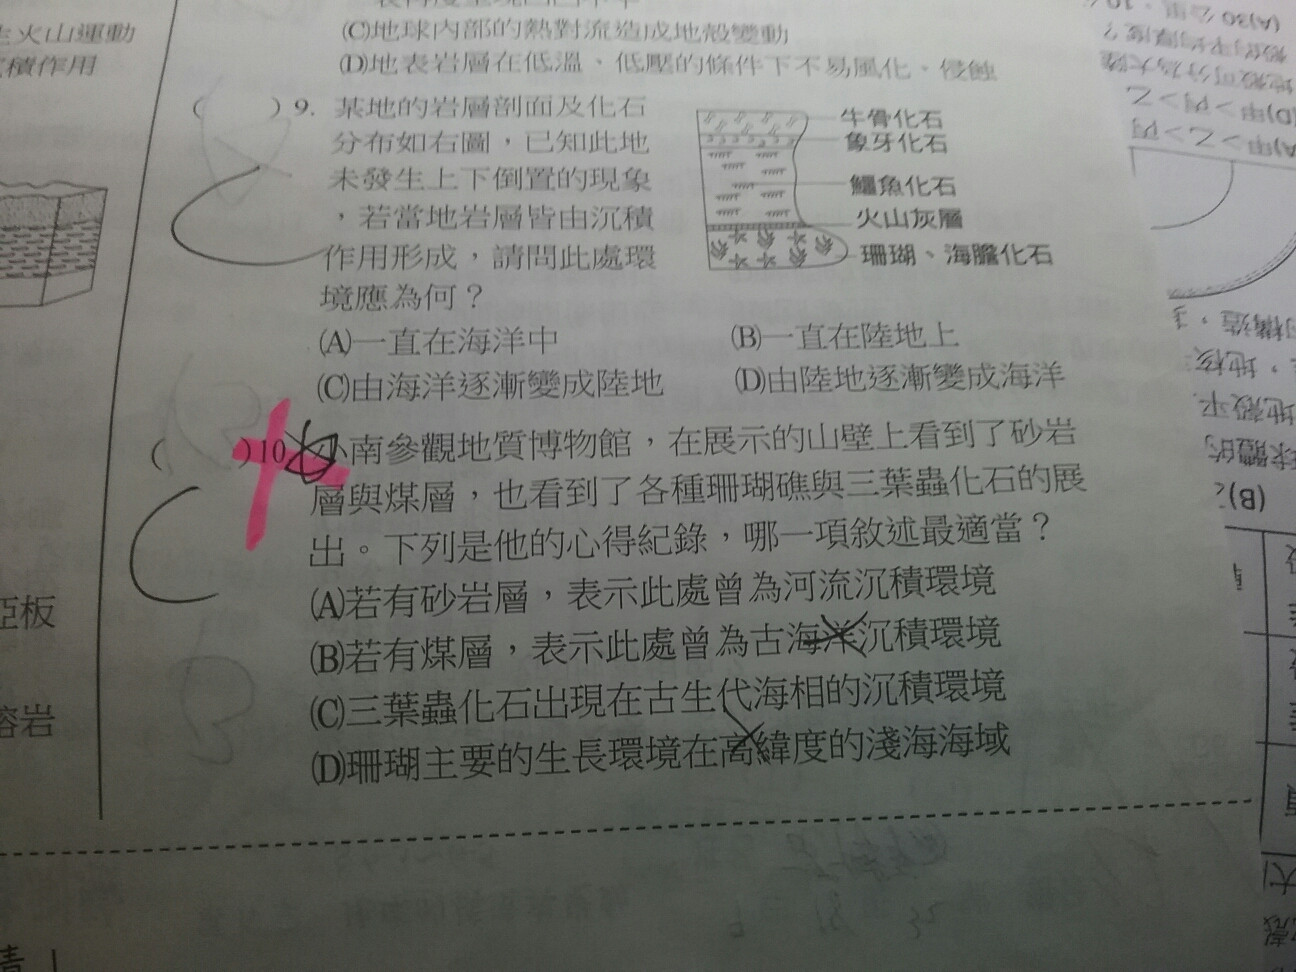 生火山運動
積作用
(C)地球內部的熱對流造成地殼變動
(D)地表岩層在低溫、低壓的條件下不易風化、侵蝕
( )9. 某地的岩層剖面及化石
分布如右圖，已知此地
未發生上下倒置的現象
，若當地岩層皆由沉積
作用形成，請問此處環
境應為何？
牛骨化石
象牙化石
鱷魚化石
火山灰層
珊瑚、海膽化石
(A)一直在海洋中 (B)一直在陸地上
(C)由海洋逐漸變成陸地 (D)由陸地逐漸變成海洋
( )10. 小南參觀地質博物館，在展示的山壁上看到了砂岩
層與煤層，也看到了各種珊瑚礁與三葉蟲化石的展
出。下列是他的心得紀錄，哪一項敘述最適當？
(A)若有砂岩層，表示此處曾為河流沉積環境
(B)若有煤層，表示此處曾為古海洋沉積環境
(C)三葉蟲化石出現在古生代海相的沉積環境
(D)珊瑚主要的生長環境在高緯度的淺海海域
亞板
熔岩
(A)30公里，10
殼的平均厚度？
地殼可分為大陸
(D)甲＞丙＞乙
(A)甲＞乙＞丙
的構造，
，地核
地殼平
球體的
(B)